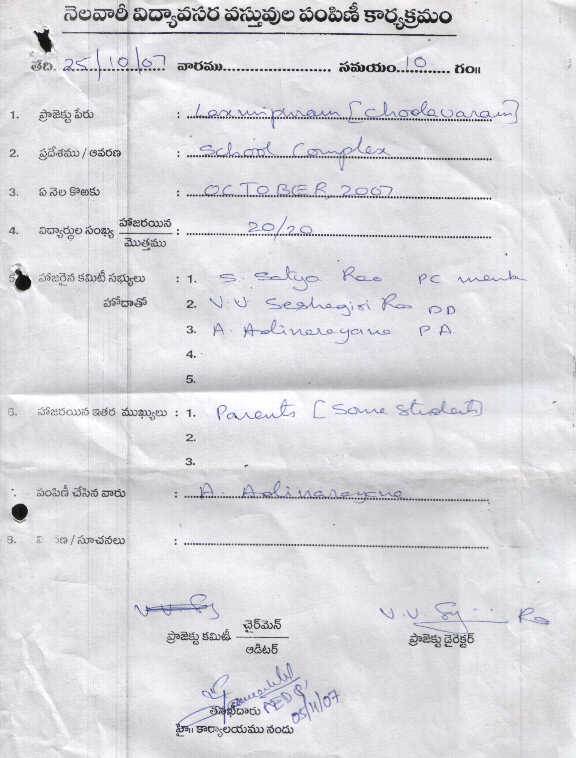 నెలవారీ విద్యావసర వస్తువుల పంపిణీ కార్యక్రమం
తేది. 25/10/07 వారము........................... సమయం...10......... గం॥
1. ప్రాజెక్టు పేరు : Laxmipuram [Chodavaram]
2. ప్రదేశము / ఆవరణ : School Complex
3. ఏ నెల కొఱకు : OCTOBER, 2007
4. విద్యార్థుల సంఖ్య హాజరయిన / మొత్తము : 20/20
హాజరైన కమిటీ సభ్యులు : 1. S. Satya Rao PC memb
హోదాతో 2. V.V. Seshagiri Rao DD
3. A. Adinarayana PA
4.
5.
6. హాజరయిన ఇతర ముఖ్యులు : 1. Parents [Some Students]
2.
3.
పంపిణీ చేసిన వారు : A. Adinarayana
8. / సూచనలు :
ప్రాజెక్టు కమిటీ చైర్‌మెన్ / ఆడిటర్
V.V. Rao
ప్రాజెక్టు డైరెక్టర్
05/11/07
హై॥ కార్యాలయము నందు